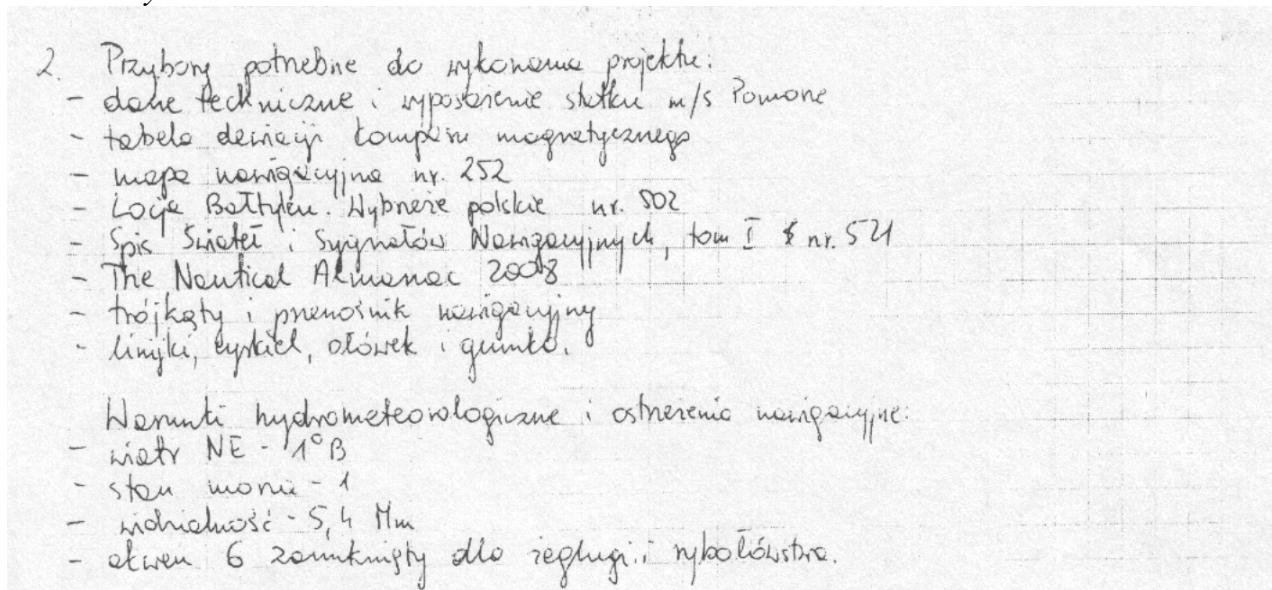 2. Przybory potrzebne do wykonania projektu:
- dane techniczne i wyposażenie statku m/s Pomona
- tabela dewiacji kompasu magnetycznego
- mapa nawigacyjna nr. 252
- Locja Bałtyku. Wybrzeże polskie nr. 502
- Spis Świateł i Sygnałów Nawigacyjnych, tom I nr. 521
- The Nautical Almanac 2008
- trójkąty i przenośnik nawigacyjny
- linijki, cyrkiel, ołówek i gumka.
Warunki hydrometeorologiczne i ostrzeżenia nawigacyjne:
- wiatr NE - 1°B
- stan morza - 1
- widzialność - 5,4 Mm
- akwen 6 zamknięty dla żeglugi i rybołówstwa.